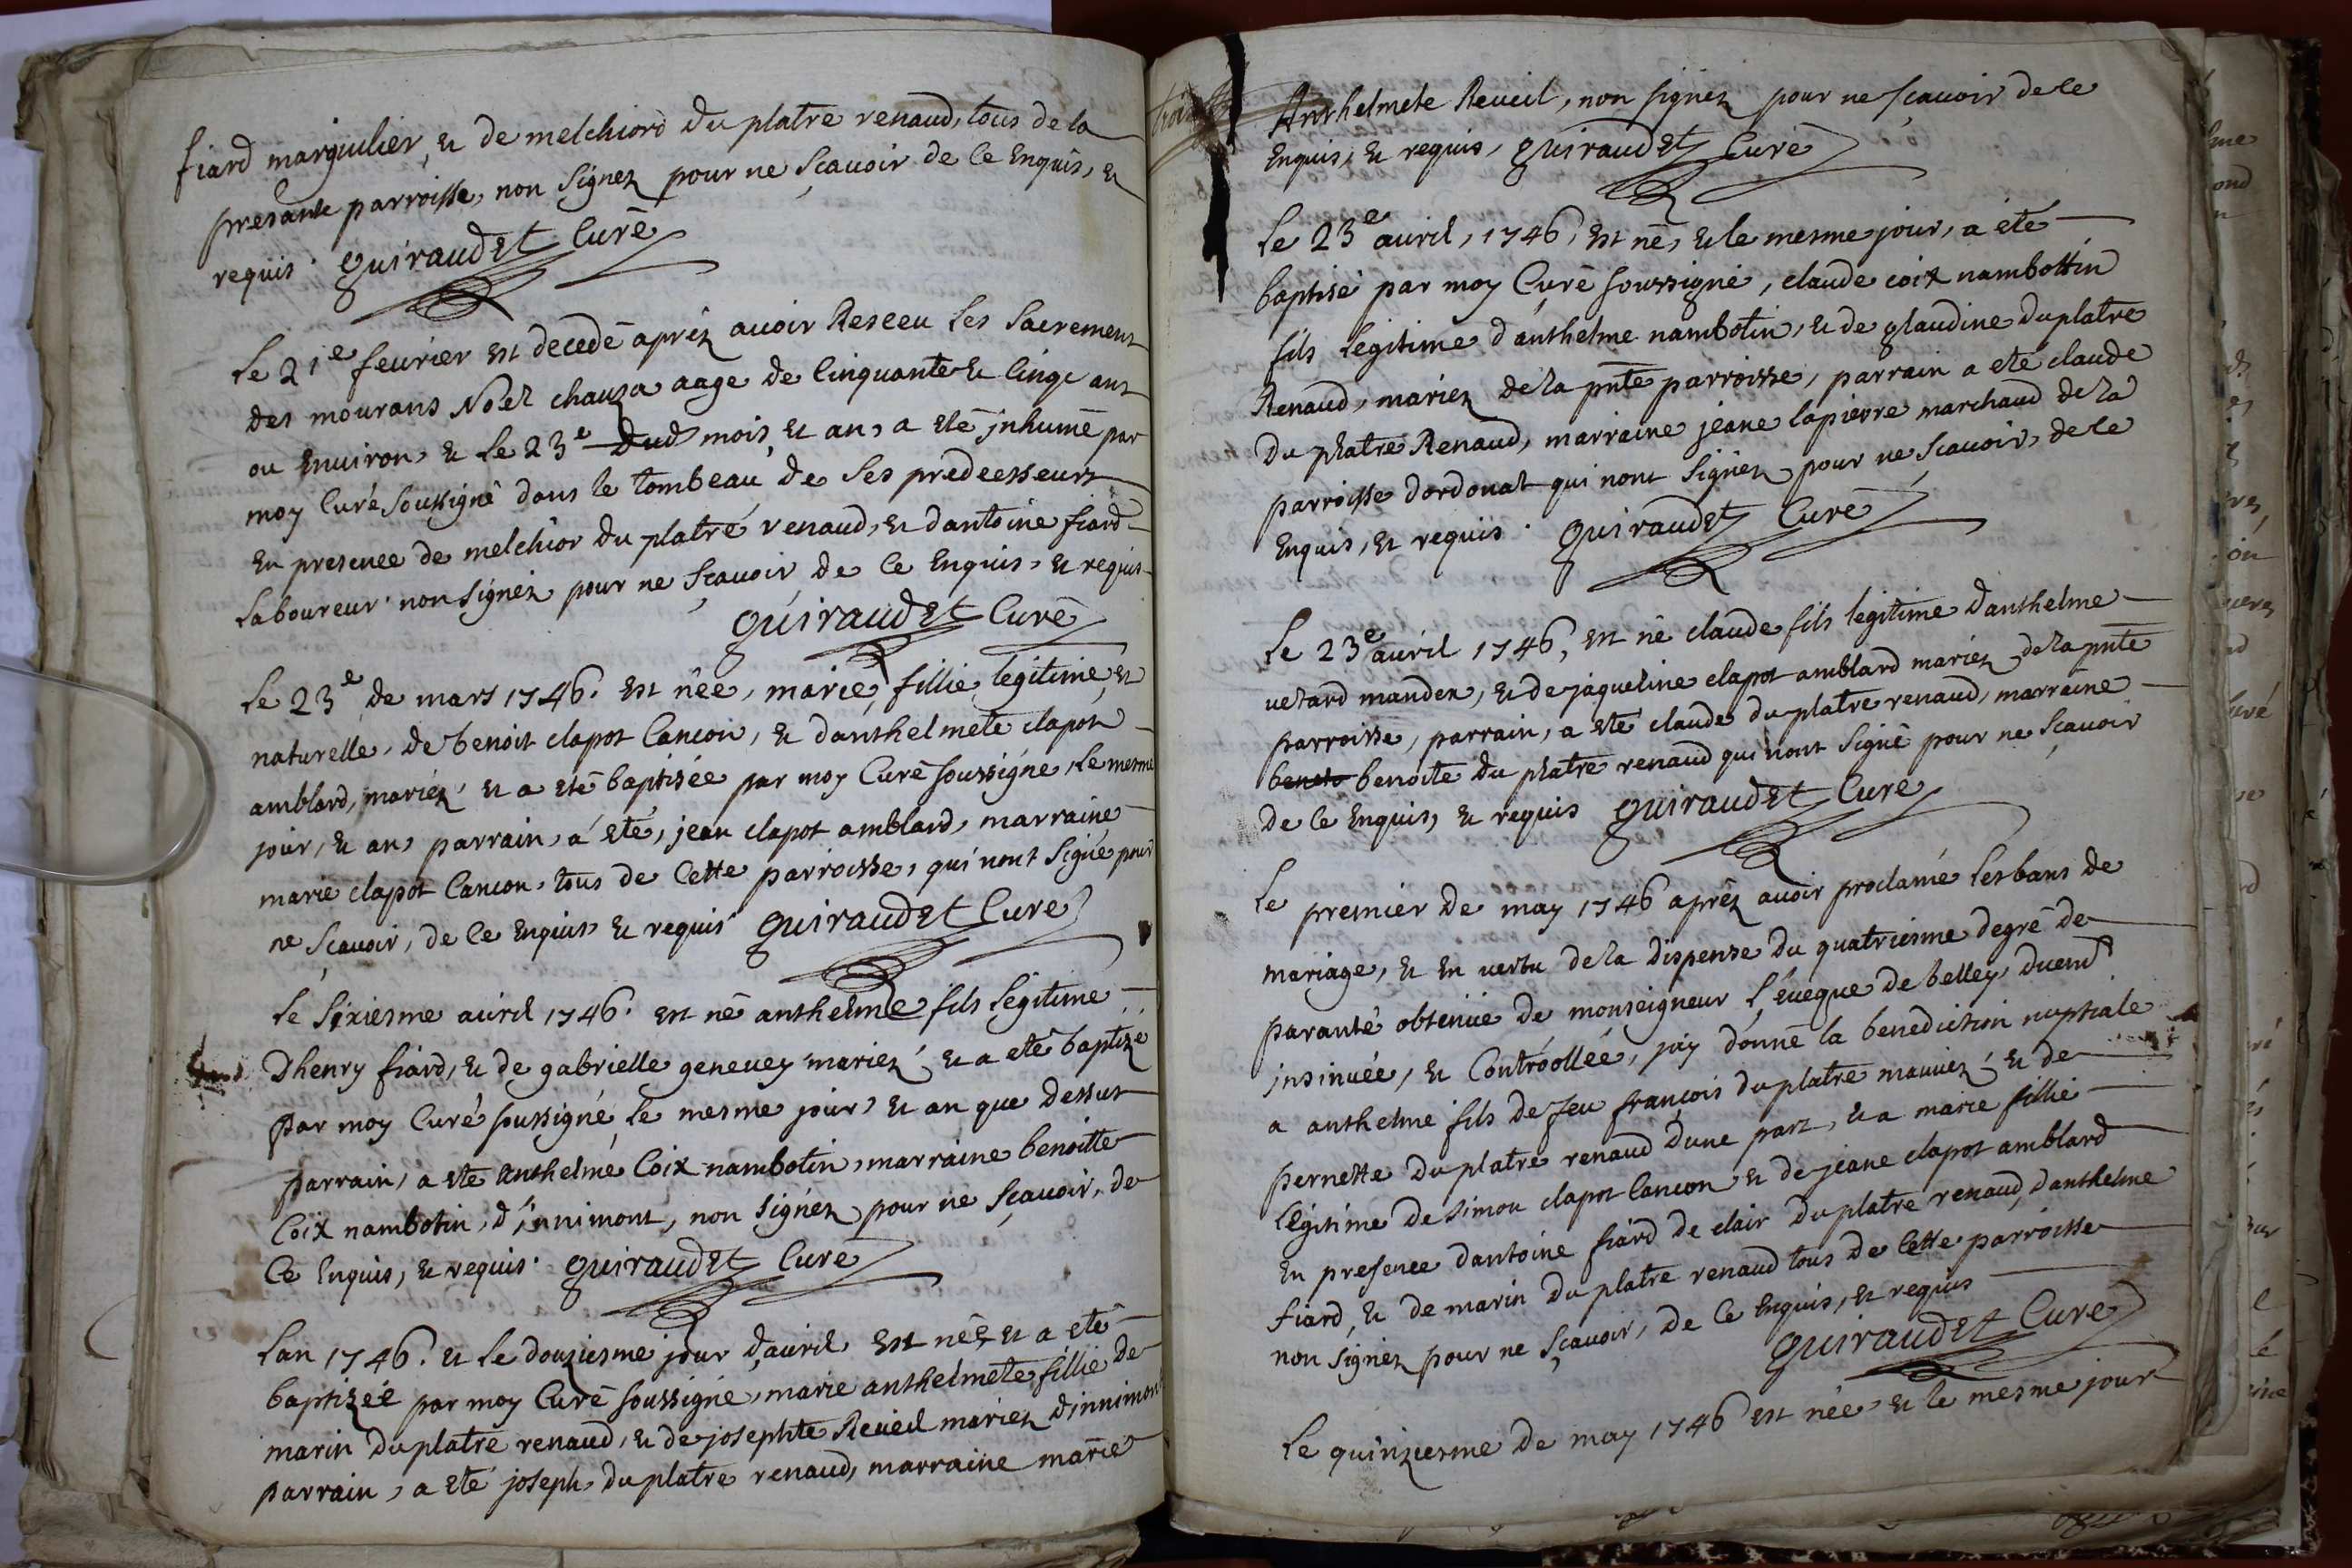 fiard marguilier, et de melchiord du platre renaud, tous de la
presante parroisse, non signez pour ne sçavoir de ce enquis, et
requis. guiraudet Curé
le 21e fevrier est decedé aprèz avoir Resceu les sacremens
des mourans Noel chauza aage de cinquante et cinqc ans
ou environ, et le 23e dud mois, et an, a eté jnhumé par
moy curé soussigné dans le tombeau de ses predecesseurs
en presence de melchior du platre renaud, et dantoine fiard
laboureur non signéz pour ne sçavoir de ce enquis, et requis
guiraudet Curé
le 23e de mars 1746. est née, marie, fillie legitime, et
naturelle, de benoit clapot Cancon, et danthelmete clapot
amblard, mariéz et a eté baptisée par moy Curé soussigné, le mesme
jour, et an, parrain, a eté, jean clapot amblard, marraine
marie clapot Cancon, tous de cette parroisse, qui nont signé pour
ne sçavoir, de ce enquis, et requis guiraudet Curé
le sixiesme avril 1746. est né anthelme fils legitime
Dhenry fiard, et de gabrielle genevey mariéz, et a eté baptizé
par moy Curé soussigné, le mesme jour, et an que dessus
parrain, a eté anthelme Coix nambotin, marraine benoitte
Coix nambotin, d'innimont, non signéz pour ne sçavoir, de
ce enquis, et requis. guiraudet Curé
lan 1746. et le douziesme jour d'avril est née, et a eté
baptizée par moy Curé soussigné, marie anthelmete fillie de
marin du platre renaud, et de josephte Reveil mariez dinnimont
parrain, a eté joseph, du platre renaud, marraine marie
Anthelmete Reveil, non signez pour ne sçavoir de ce
enquis, et requis, guiraudet Curé
le 23e avril, 1746, est né, et le mesme jour, a eté
baptisé par moy Curé soussigné, claude coix nambottin
fils legitime d'anthelme nambotin, et de glaudine du platre
Renaud, mariez de la pnte parroisse, parrain a eté claude
du platre Renaud, marraine jeane lapierre marchand de la
parroisse dordonat qui nont signéz pour ne sçavoir, de ce
enquis, et requis. guiraudet Curé
le 23e avril 1746, est né claude fils legitime danthelme
vetard mandex, et de jaqueline clapot amblard mariez de la pnte
parroisse, parrain, a eté claude du platre renaud, marraine
benoite du platre renaud qui nont signé pour ne sçavoir
de ce enquis, et requis guiraudet Curé
le premier de may 1746 aprèz avoir proclamé les bans de
mariage, et en vertu de la dispense du quatriesme degré de
paranté obtenüe de monseigneur l'eveque de belley, duemt
jnsinuée, et Contróollée, jay donné la benediction nuptiale
a anthelme fils de feu françois du platre mauviez, et de
pernette du platre renaud dune part, et a marie fillie
legitime de simon clapot Cancon, et de jeane clapot amblard
en presence dantoine fiard de clair du platre renaud, danthelme
fiard, et de marin du platre renaud tous de cette parroisse
non signez pour ne sçavoir, de ce enquis, et requis
guiraudet Curé
le quinziesme de may 1746 est née, et le mesme jour